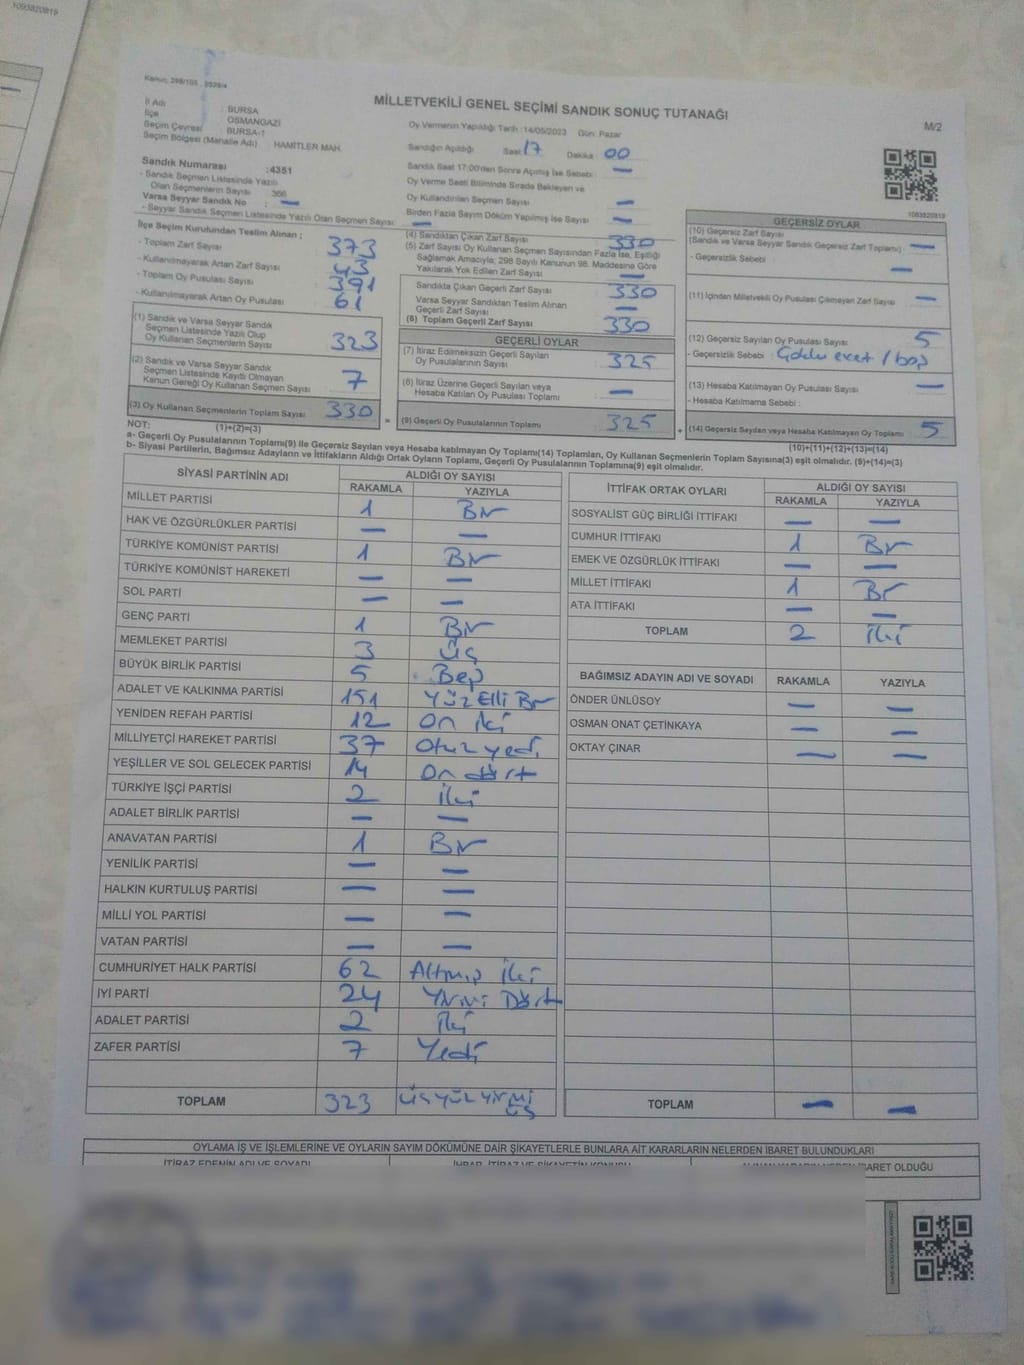 1093820819
Kanun: 298/105
MİLLETVEKİLİ GENEL SEÇİMİ SANDIK SONUÇ TUTANAĞI
M/2
İl Adı : BURSA
İlçe : OSMANGAZİ
Seçim Çevresi : BURSA-1
Seçim Bölgesi (Mahalle Adı) : HAMİTLER MAH.
Oy Vermenin Yapıldığı Tarih :14/05/2023 Gün :Pazar
Sandığın Açıldığı Saat 17 Dakika 00
Sandık Numarası :4351
- Sandık Seçmen Listesinde Yazılı
Olan Seçmenlerin Sayısı : 366
Varsa Seyyar Sandık No : —
- Seyyar Sandık Seçmen Listesinde Yazılı Olan Seçmen Sayısı : —
Sandık Saat 17:00'den Sonra Açılmış İse Sebebi : —
Oy Verme Saati Bitiminde Sırada Bekleyen ve
Oy Kullandırılan Seçmen Sayısı : —
Birden Fazla Sayım Döküm Yapılmış İse Sayısı : —
1093820819
İlçe Seçim Kurulundan Teslim Alınan ;
- Toplam Zarf Sayısı : 373
- Kullanılmayarak Artan Zarf Sayısı : 43
- Toplam Oy Pusulası Sayısı : 391
- Kullanılmayarak Artan Oy Pusulası : 61
(1) Sandık ve Varsa Seyyar Sandık
Seçmen Listesinde Yazılı Olup
Oy Kullanan Seçmenlerin Sayısı : 323
(2) Sandık ve Varsa Seyyar Sandık
Seçmen Listesinde Kayıtlı Olmayan
Kanun Gereği Oy Kullanan Seçmen Sayısı : 7
(3) Oy Kullanan Seçmenlerin Toplam Sayısı : 330
(1)+(2)=(3)
(4) Sandıktan Çıkan Zarf Sayısı : 330
(5) Zarf Sayısı Oy Kullanan Seçmen Sayısından Fazla İse, Eşitliği
Sağlamak Amacıyla, 298 Sayılı Kanunun 98. Maddesine Göre
Yakılarak Yok Edilen Zarf Sayısı : —
Sandıkta Çıkan Geçerli Zarf Sayısı : 330
Varsa Seyyar Sandıktan Teslim Alınan
Geçerli Zarf Sayısı : —
(6) Toplam Geçerli Zarf Sayısı : 330
GEÇERLİ OYLAR
(7) İtiraz Edilmeksizin Geçerli Sayılan
Oy Pusulalarının Sayısı : 325
(8) İtiraz Üzerine Geçerli Sayılan veya
Hesaba Katılan Oy Pusulası Toplamı : —
= (9) Geçerli Oy Pusulalarının Toplamı : 325
GEÇERSİZ OYLAR
(10) Geçersiz Zarf Sayısı
(Sandık ve Varsa Seyyar Sandık Geçersiz Zarf Toplamı) : —
- Geçersizlik Sebebi : —
(11) İçinden Milletvekili Oy Pusulası Çıkmayan Zarf Sayısı : —
(12) Geçersiz Sayılan Oy Pusulası Sayısı : 5
- Geçersizlik Sebebi :
(13) Hesaba Katılmayan Oy Pusulası Sayısı : —
- Hesaba Katılmama Sebebi :
+ (14) Geçersiz Sayılan veya Hesaba Katılmayan Oy Toplamı : 5
(10)+(11)+(12)+(13)=(14)
NOT:
a- Geçerli Oy Pusulalarının Toplamı(9) ile Geçersiz Sayılan veya Hesaba Katılmayan Oy Toplamı(14) Toplamları, Oy Kullanan Seçmenlerin Toplam Sayısına(3) eşit olmalıdır. (9)+(14)=(3)
b- Siyasi Partilerin, Bağımsız Adayların ve İttifakların Aldığı Ortak Oyların Toplamı, Geçerli Oy Pusulalarının Toplamına(9) eşit olmalıdır.
SİYASİ PARTİNİN ADI ALDIĞI OY SAYISI
RAKAMLA YAZIYLA
MİLLET PARTİSİ 1 Bir
HAK VE ÖZGÜRLÜKLER PARTİSİ — —
TÜRKİYE KOMÜNİST PARTİSİ 1 Bir
TÜRKİYE KOMÜNİST HAREKETİ — —
SOL PARTİ — —
GENÇ PARTİ 1 Bir
MEMLEKET PARTİSİ 3 Üç
BÜYÜK BİRLİK PARTİSİ 5 Beş
ADALET VE KALKINMA PARTİSİ 151 Yüz Elli Bir
YENİDEN REFAH PARTİSİ 12 On iki
MİLLİYETÇİ HAREKET PARTİSİ 37 Otuz yedi
YEŞİLLER VE SOL GELECEK PARTİSİ 14 On dört
TÜRKİYE İŞÇİ PARTİSİ 2 İki
ADALET BİRLİK PARTİSİ — —
ANAVATAN PARTİSİ 1 Bir
YENİLİK PARTİSİ — —
HALKIN KURTULUŞ PARTİSİ — —
MİLLİ YOL PARTİSİ — —
VATAN PARTİSİ — —
CUMHURİYET HALK PARTİSİ 62 Altmış iki
İYİ PARTİ 24 Yirmi Dört
ADALET PARTİSİ 2 İki
ZAFER PARTİSİ 7 Yedi
TOPLAM 323 üçyüz yirmi üç
İTTİFAK ORTAK OYLARI ALDIĞI OY SAYISI
RAKAMLA YAZIYLA
SOSYALİST GÜÇ BİRLİĞİ İTTİFAKI — —
CUMHUR İTTİFAKI 1 Bir
EMEK VE ÖZGÜRLÜK İTTİFAKI — —
MİLLET İTTİFAKI 1 Bir
ATA İTTİFAKI — —
TOPLAM 2 iki
BAĞIMSIZ ADAYIN ADI VE SOYADI RAKAMLA YAZIYLA
ÖNDER ÜNLÜSOY — —
OSMAN ONAT ÇETİNKAYA — —
OKTAY ÇINAR — —
TOPLAM — —
OYLAMA İŞ VE İŞLEMLERİNE VE OYLARIN SAYIM DÖKÜMÜNE DAİR ŞİKAYETLERLE BUNLARA AİT KARARLARIN NELERDEN İBARET BULUNDUKLARI
İTİRAZ EDENİN ADI VE SOYADI İHBAR, İTİRAZ VE ŞİKAYETİN KONUSU ALINAN KARARIN NEDEN İBARET OLDUĞU